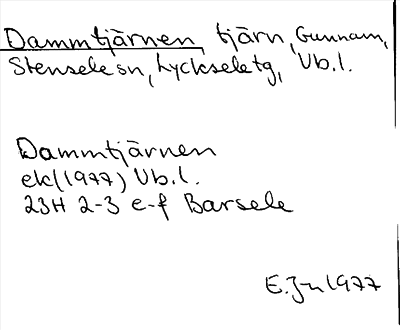 Dammtjärnen, tjärn, Gunnarn,
Stensele sn, Lycksele tg, Vb.l.
Dammtjärnen
ek(1977) Vb.l.
23H 2-3 e-f Barsele
E.Jn 1977